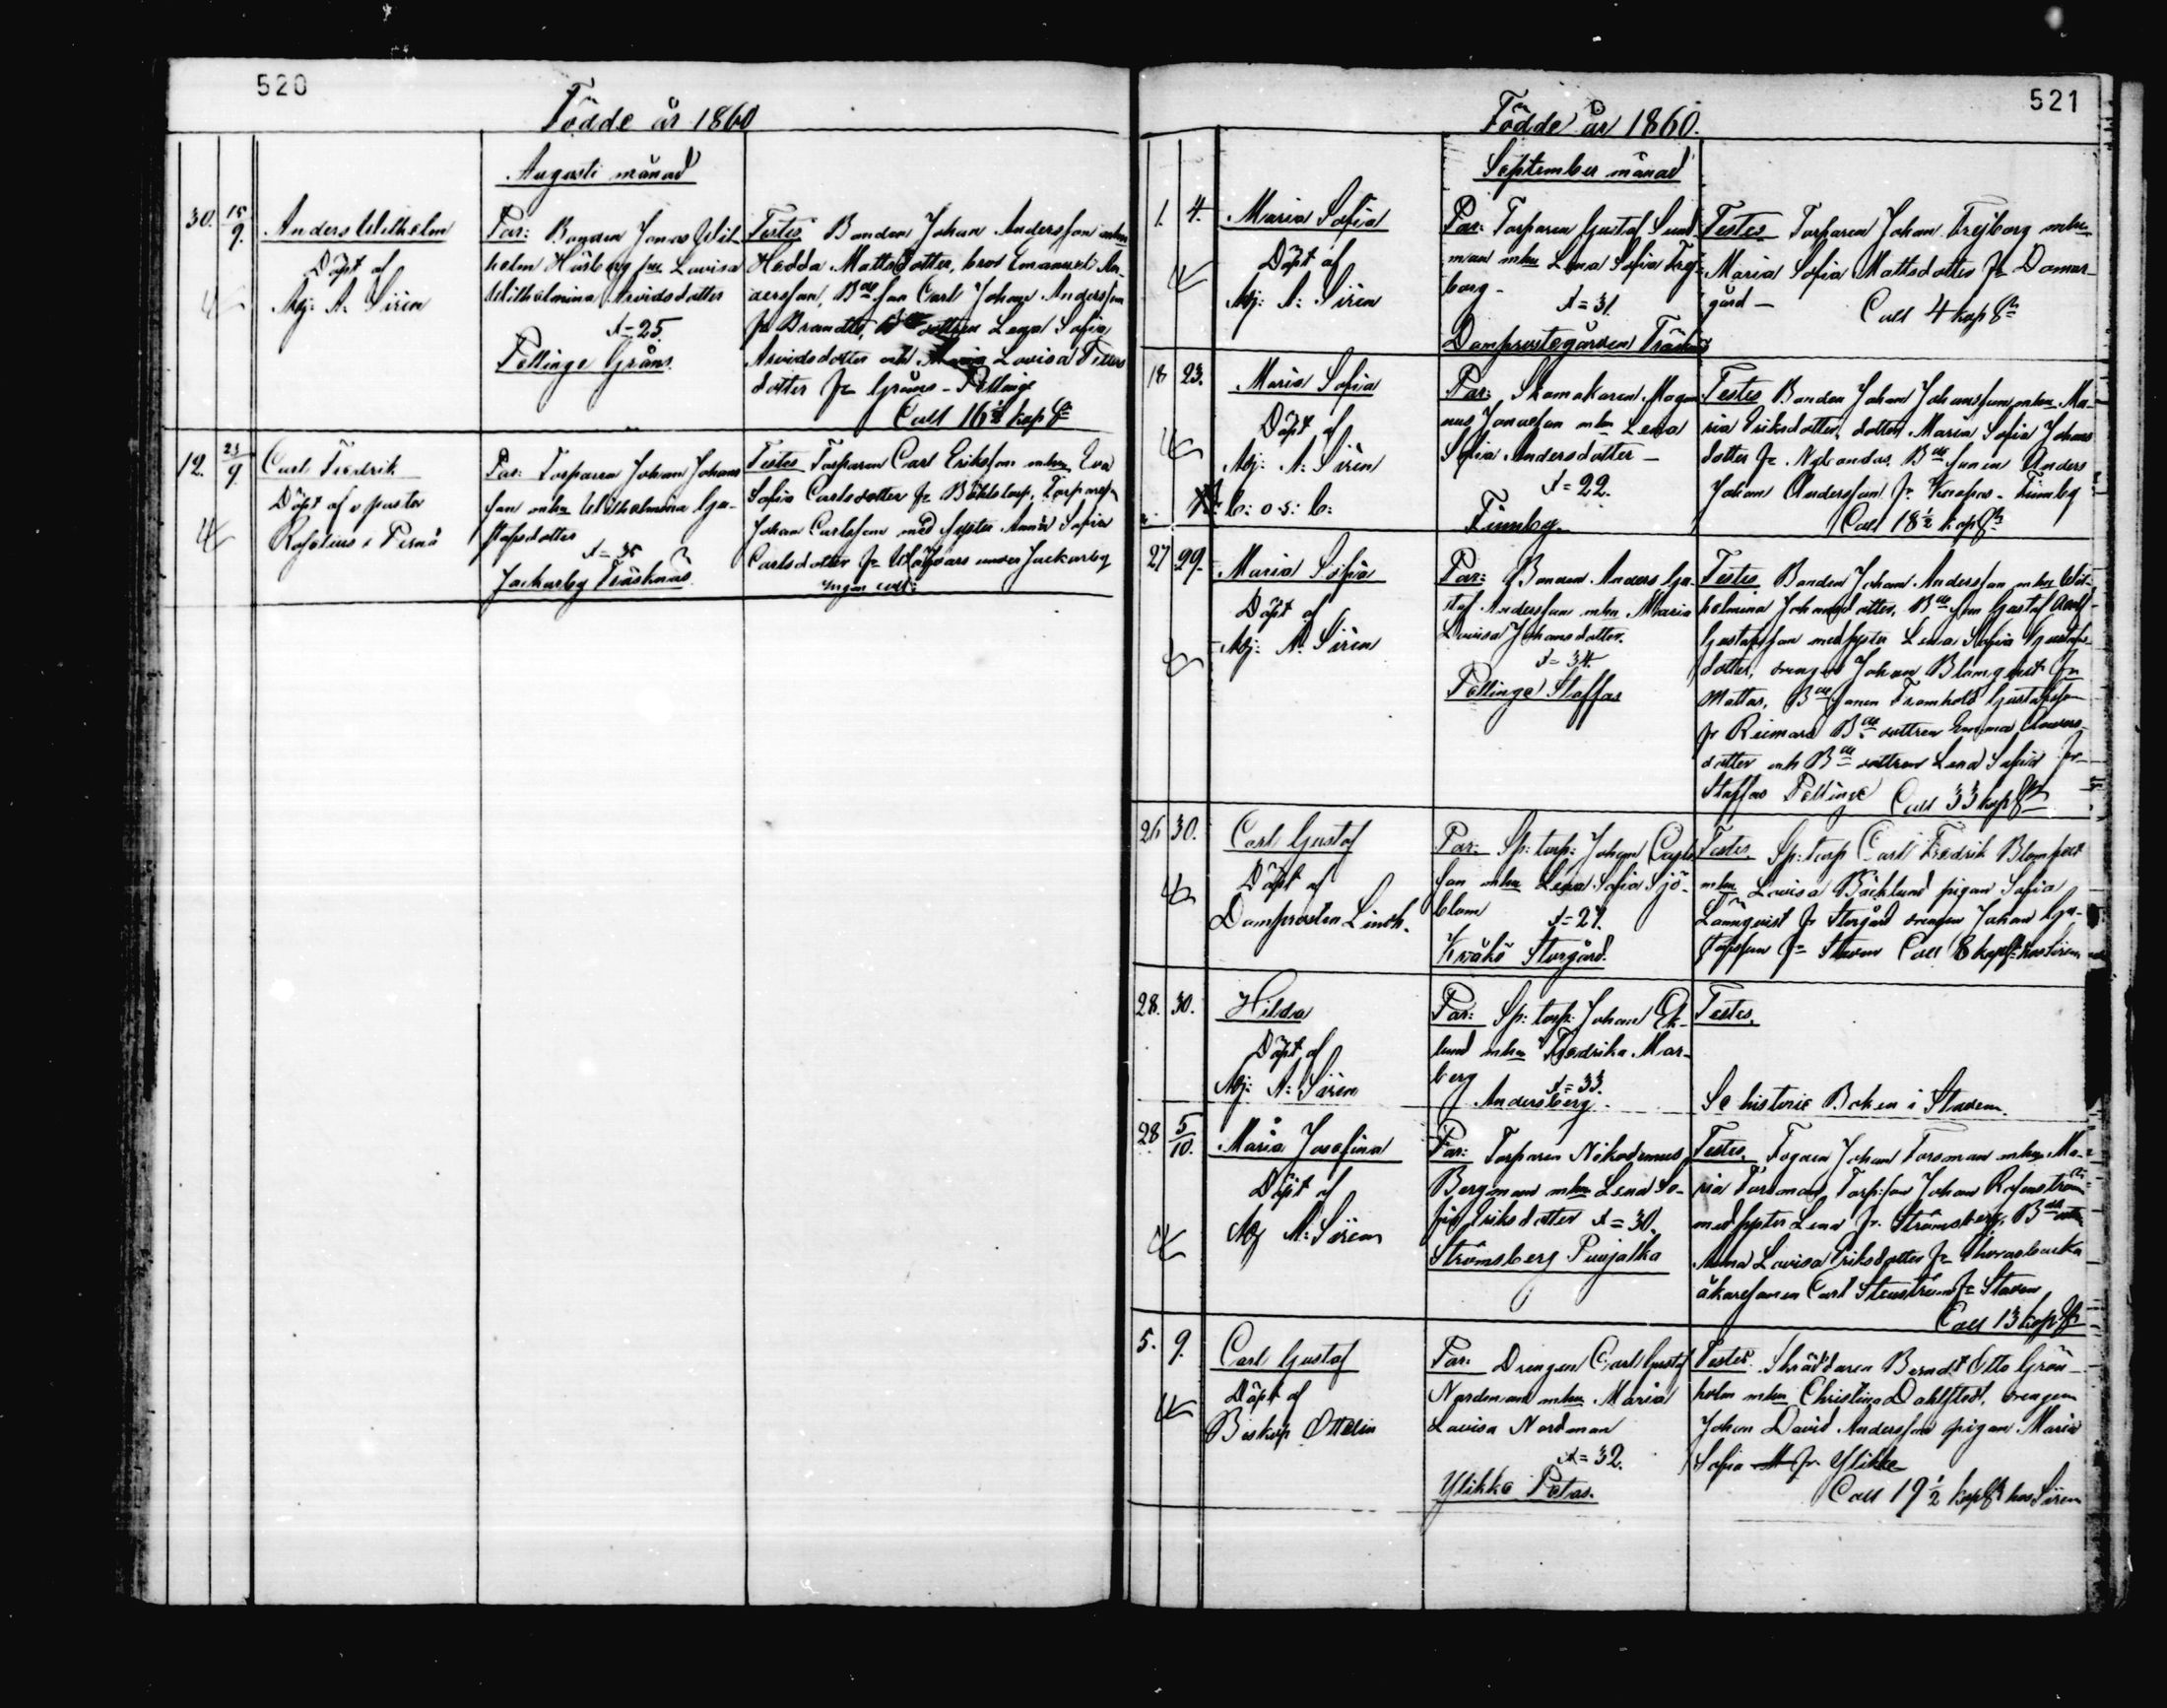 520
Födde år 1860
Augusti månad
30. 15/9. Anders Wilhelm
Döpt af
Adj: A: Sirén
Par: Bonden Jonas Wil-
helm Husberg mhu Lovisa
Wilhelmina Arvidsdotter
Æ = 25.
Pellinge Gräns.
Testes Bonden Johan Andersson mhu
Hedda Mattsdotter, bror Emanuel An-
dersson, Bde son Carl Johan Andersson
fr Brandts, dottren Lena Sofia
Arvidsdotter och Lovisa
dotter fr Gräns-Pellinge
Coll 16½ kop Sr
12. 23/9. Carl Fredrik
Döpt af v pastor
Roselius i Pernå
Par: Torparen Johan Johans
son mhu Wilhelmina Gu-
stafsdotter
Æ = 35
Jackarby Träsknäs.
Testes Torparen Carl Eriksson mhu Eva
Sofia Carlsdotter fr
Johan Carlsson med syster Anna Sofia
Carlsdotter fr under Jackarby
ingen coll:
521
Födde år 1860.
September månad
1. 4. Maria Sofia
Döpt af
Adj: A: Sirén
Par: Torparen Gustaf Sund-
man mhu Lena Sofia Frej-
borg-
Æ = 31.
Domprostegården Träsknäs
Testes Torparen Johan Frejborg mhu
Maria Sofia Mattsdotter fr Domar-
gård-
Coll 4 kop Sr
18 23. Maria Sofia
Döpt af
Adj: A: Sirén
b: o s: b:
Par: Skomakaren Mag-
nus Jonasson mhu Lena
Sofia Andersdotter-
Æ = 22.
Finnby.
Testes Bonden Johan Johansson mhu Ma-
ria Eriksdotter, dotter Maria Sofia Johans
dotter fr Nylandas, Bde sonen Anders
Johan Andersson fr Finnby
Coll 18½ kop Sr
27 29. Maria Sofia
Döpt af
Adj: A: Sirén
Par: Bonden Anders Gu-
staf Andersson mhu Maria
Lovisa Johansdotter.
Æ = 34.
Pellinge Staffas
Testes Bonden Johan Andersson mhu Wil-
helmina Johansdotter, Bde son Gustaf Adolf
Gustafsson med syster Lena Sofia Gustafs-
dotter, drengen Johan Blomqvist fr
Mattas, Bde sonen Framhold Gustafsson
fr Riemars Bde dottren Emma Anders-
dotter och Bde dottren Lena Sofia fr
Staffas Pellinge Coll 33 kop Sr
26 30. Carl Gustaf
Döpt af
Domprosten Lindh.
Par: Sp: torp: Johan Carls
son mhu Lena Sofia Sjö-
blom
Æ = 27.
Kråkö Storgård.
Testes, Sp: torp Carl Fredrik Blomqvist
mhu Lovisa Bäcklund pigan Sofia
Lönnqvist fr Storgård drengen Johan Gu-
stafsson fr Staden Coll 8 kop Sr hos Sirén
28. 30. Hilda
Döpt af
Adj: A: Sirén
Par: Sp: torp: Johan Ek-
lund mhu Fredrika Mar-
berg
Æ = 33.
Andersberg.
Testes,
Se historie Boken i Staden.
28 5/10. Maria Josefina
Döpt af
Adj A: Sirén
Par: Torparen Nikodemus
Bergman mhu Lena So-
fia Eriksdotter Æ = 30.
Strömsberg Puujalka
Testes, Fogden Johan Forsman mhu Ma-
ria Forsman Torp: son Johan Rosenström
med syster Lena fr. Strömsberg, Bde
Anna Lovisa Eriksdotter fr
åkaresonen Carl Stenström fr Staden
Coll 13 kop Sr
5. 9. Carl Gustaf
Döpt af
Biskop Ottelin
Par: Drengen Carl Gustaf
Nordman mhu Maria
Lovisa Nordman
Æ = 32.
Ylikke Petas.
Testes. Skräddaren Berndt Otto Grön-
holm mhu Christina Dahlstedt, drengen
Johan David Andersson pigan Maria
Sofia fr Ylikke
Coll 19½ kop Sr hos Sirén